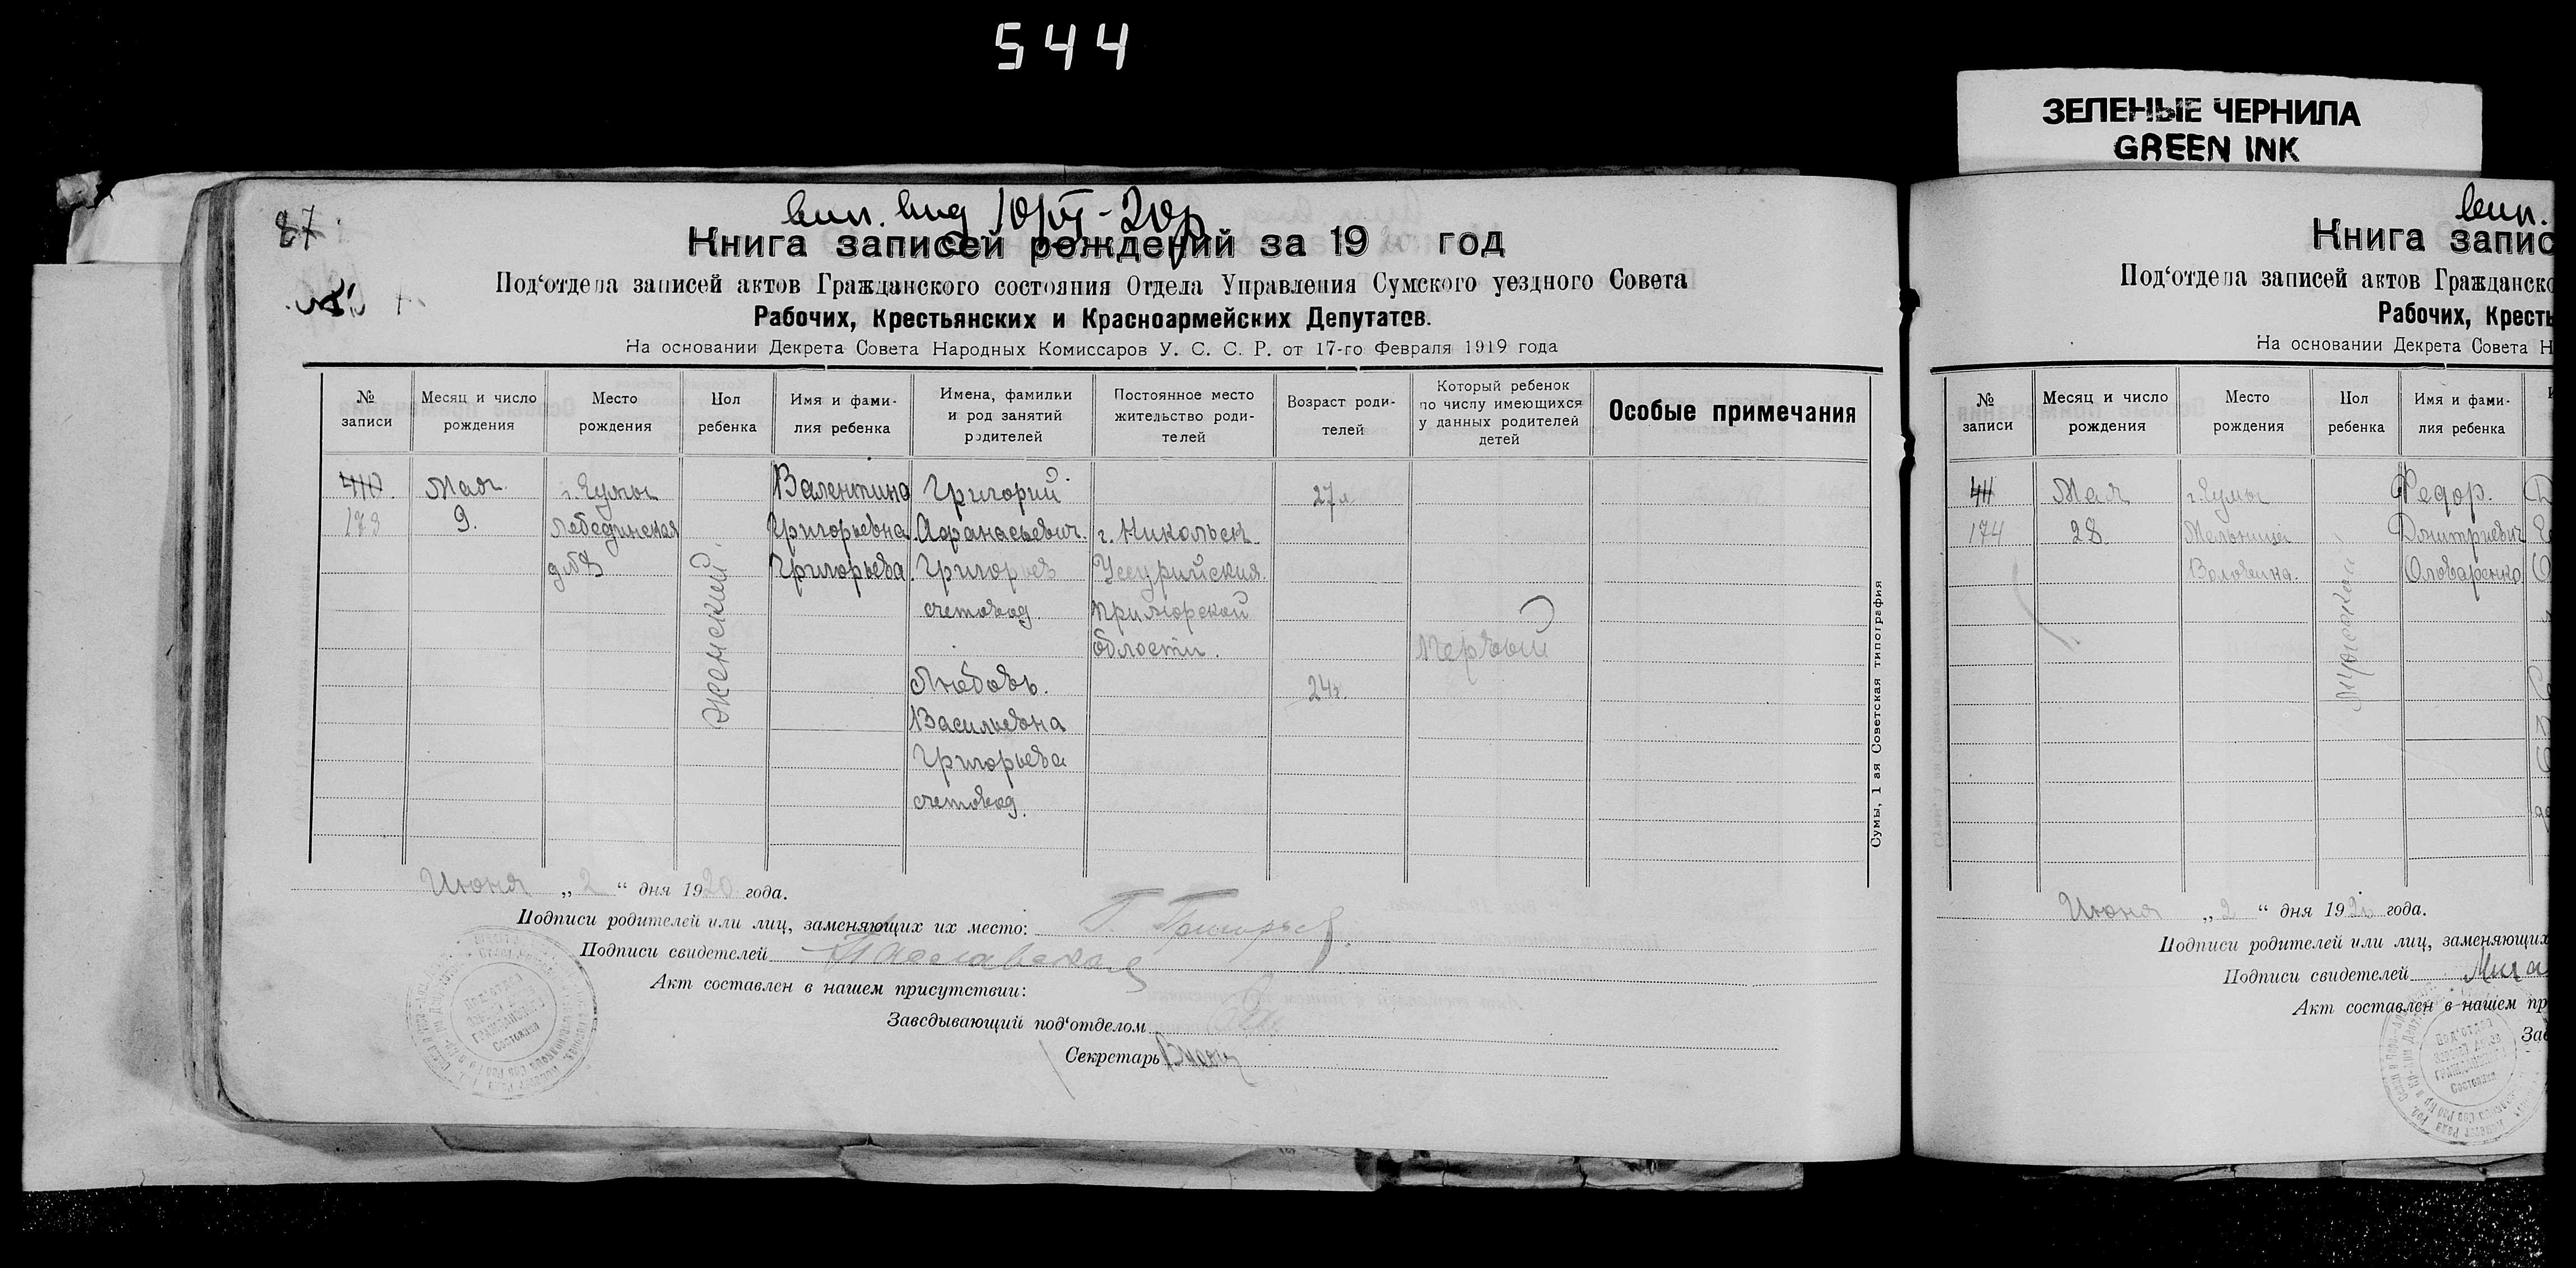 544
ЗЕЛЕНЫЕ ЧЕРНИЛА
GREEN INK
87
вип. вид 10/VI-20р
Книга записей рождений за 19 год
Под‘отдела записей актов Гражданского состояния Отдела Управления Сумского уездного Совета
Рабочих, Крестьянских и Красноармейских Депутатов.
На основании Декрета Совета Народных Комиссаров У. С. С. Р. от 17-го Февраля 1919 года
№ записи
Месяц и число рождения
Место рождения
Пол ребенка
Имя и фами-
лия ребенка
Имена, фамилии
и род занятий
родителей
Постоянное место
жительство роди-
телей
Возраст роди-
телей
Который ребенок
по числу имеющихся
у данных родителей
детей
Особые примечания
410.
173
Мая
9.
г. Сумы
Лебединская
д. № 8
женский.
Валентина
Григорьевна
Григорьева.
Григорий
Афанасьевич.
Григорьев
счетовод
Любовь.
Васильевна
Григорьева
счетовод.
г. Никольск
Уссурийский.
Приморской
области.
27 л
24 г.
Первый
Сумы, 1 ая Советская типография
Июня „2“ дня 1920 года.
Подписи родителей или лиц, заменяющих их место: Г. Григорьев.
Подписи свидетелей
Акт составлен в нашем присутствии:
Заведывающий под‘отделом
Секретарь
вип.
Книга запис
Под‘отдела записей актов Гражданско
Рабочих, Кресть
На основании Декрета Совета Н
№ записи
Месяц и число рождения
Место рождения
Пол ребенка
Имя и фами-
лия ребенка
411
174
Мая
28
г. Сумы
Мельница
мужской
Федор.
Дмитриевич
Июня „2“ дня 1920 года.
Подписи родителей или лиц, заменяющих
Подписи свидетелей
Акт составлен в нашем пр
Зав
Под‘отдел
Записей Актов
Гражданского
Состояния